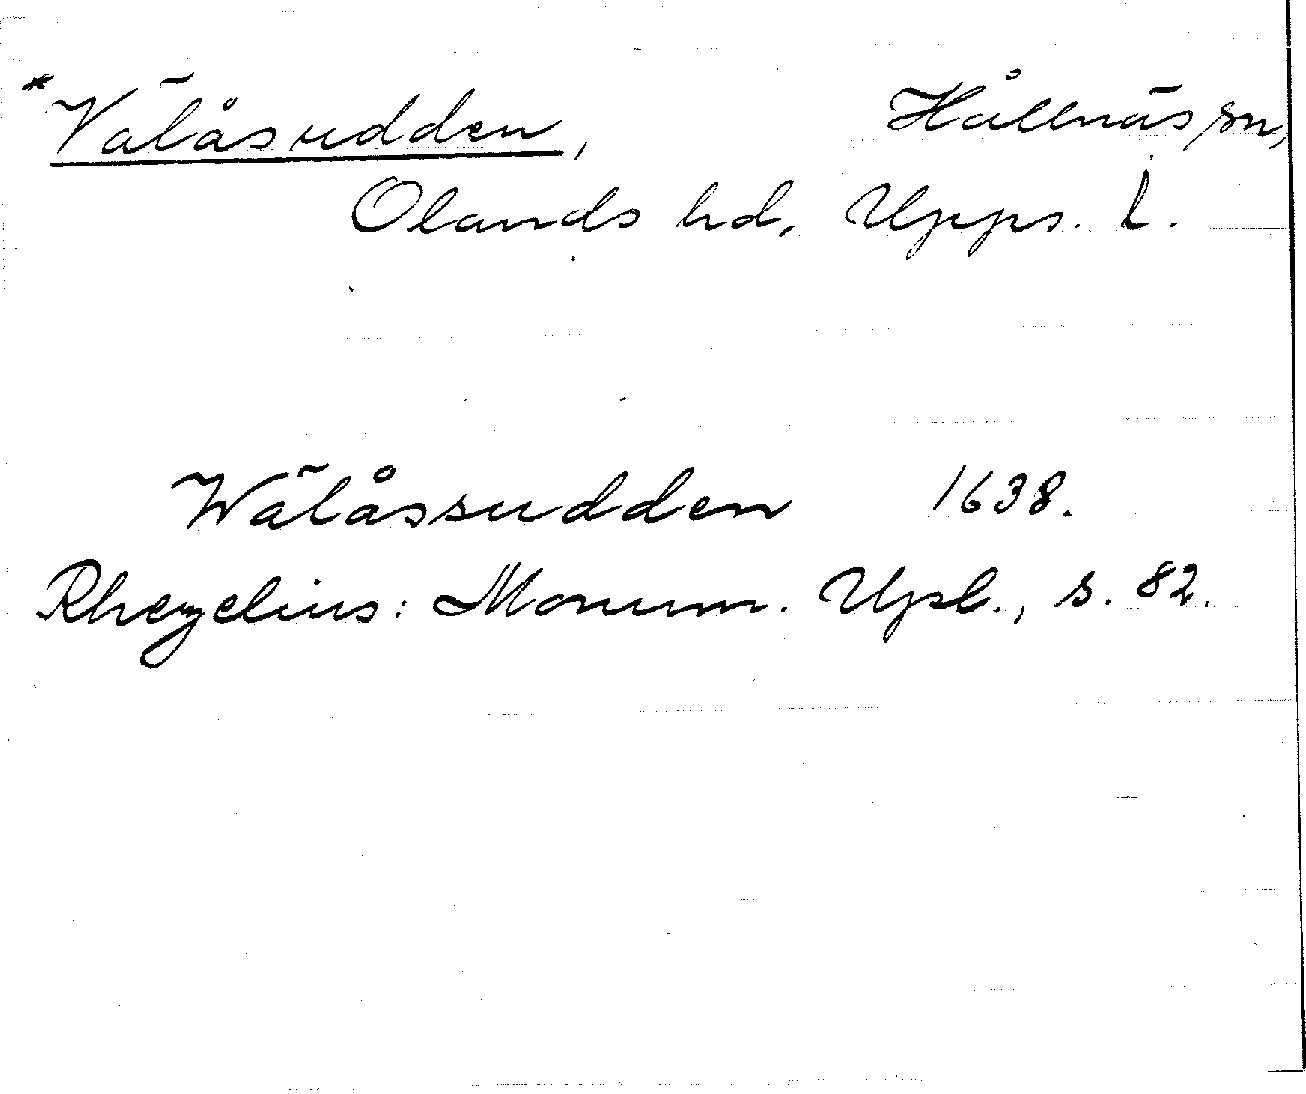 *Välåsudden, Hållnäs sn,
Olands hd, Upps. l.
Wälåssudden 1638.
Rhezelius: Monum. Upl., s. 82.